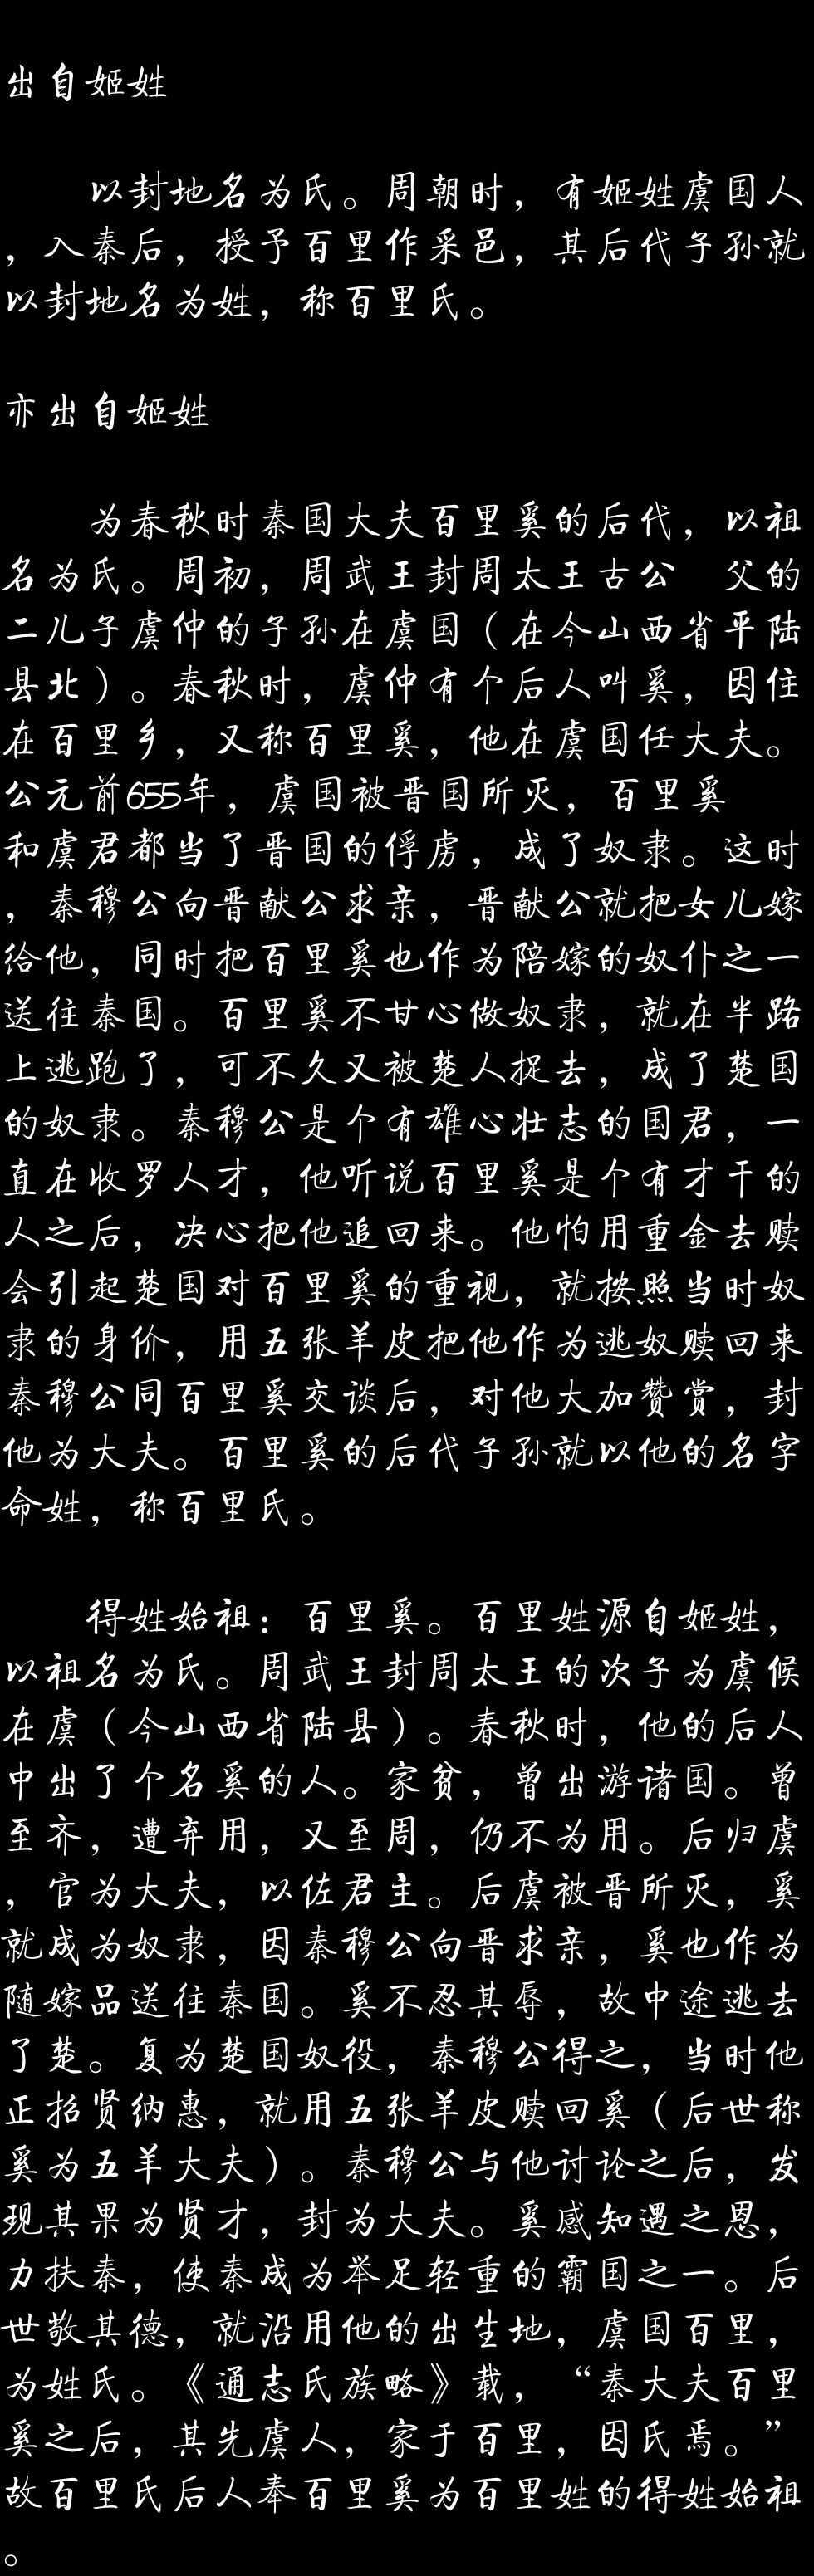 出自姬姓
以封地名为氏。周朝时，有姬姓虞国人
，入秦后，授予百里作采邑，其后代子孙就
以封地名为姓，称百里氏。
亦出自姬姓
为春秋时秦国大夫百里奚的后代，以祖
名为氏。周初，周武王封周太王古公 父的
二儿子虞仲的子孙在虞国（在今山西省平陆
县北）。春秋时，虞仲有个后人叫奚，因住
在百里乡，又称百里奚，他在虞国任大夫。
公元前655年，虞国被晋国所灭，百里奚
和虞君都当了晋国的俘虏，成了奴隶。这时
，秦穆公向晋献公求亲，晋献公就把女儿嫁
给他，同时把百里奚也作为陪嫁的奴仆之一
送往秦国。百里奚不甘心做奴隶，就在半路
上逃跑了，可不久又被楚人捉去，成了楚国
的奴隶。秦穆公是个有雄心壮志的国君，一
直在收罗人才，他听说百里奚是个有才干的
人之后，决心把他追回来。他怕用重金去赎
会引起楚国对百里奚的重视，就按照当时奴
隶的身价，用五张羊皮把他作为逃奴赎回来
秦穆公同百里奚交谈后，对他大加赞赏，封
他为大夫。百里奚的后代子孙就以他的名字
命姓，称百里氏。
得姓始祖：百里奚。百里姓源自姬姓，
以祖名为氏。周武王封周太王的次子为虞候
在虞（今山西省陆县）。春秋时，他的后人
中出了个名奚的人。家贫，曾出游诸国。曾
至齐，遭弃用，又至周，仍不为用。后归虞
，官为大夫，以佐君主。后虞被晋所灭，奚
就成为奴隶，因秦穆公向晋求亲，奚也作为
随嫁品送往秦国。奚不忍其辱，故中途逃去
了楚。复为楚国奴役，秦穆公得之，当时他
正招贤纳惠，就用五张羊皮赎回奚（后世称
奚为五羊大夫）。秦穆公与他讨论之后，发
现其果为贤才，封为大夫。奚感知遇之恩，
力扶秦，使秦成为举足轻重的霸国之一。后
世敬其德，就沿用他的出生地，虞国百里，
为姓氏。《通志氏族略》载，“秦大夫百里
奚之后，其先虞人，家于百里，因氏焉。”
故百里氏后人奉百里奚为百里姓的得姓始祖
。